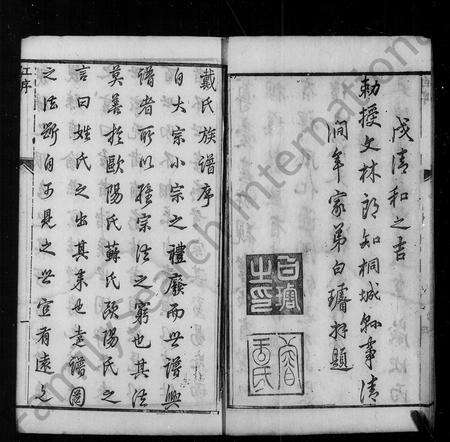 戊清和之吉
勅授文林郎知桐城縣事清
澗年家弟白璿拜題
白璿之印
戴氏族譜序
自大宗小宗之禮廢而世譜興
譜者所以濟宗法之窮也其法
莫善於歐陽氏蘇氏歐陽氏之
言曰姓氏之出其來也遠譜圖
之法斷自可見之世宜有遠之
江序
FamilySearch International